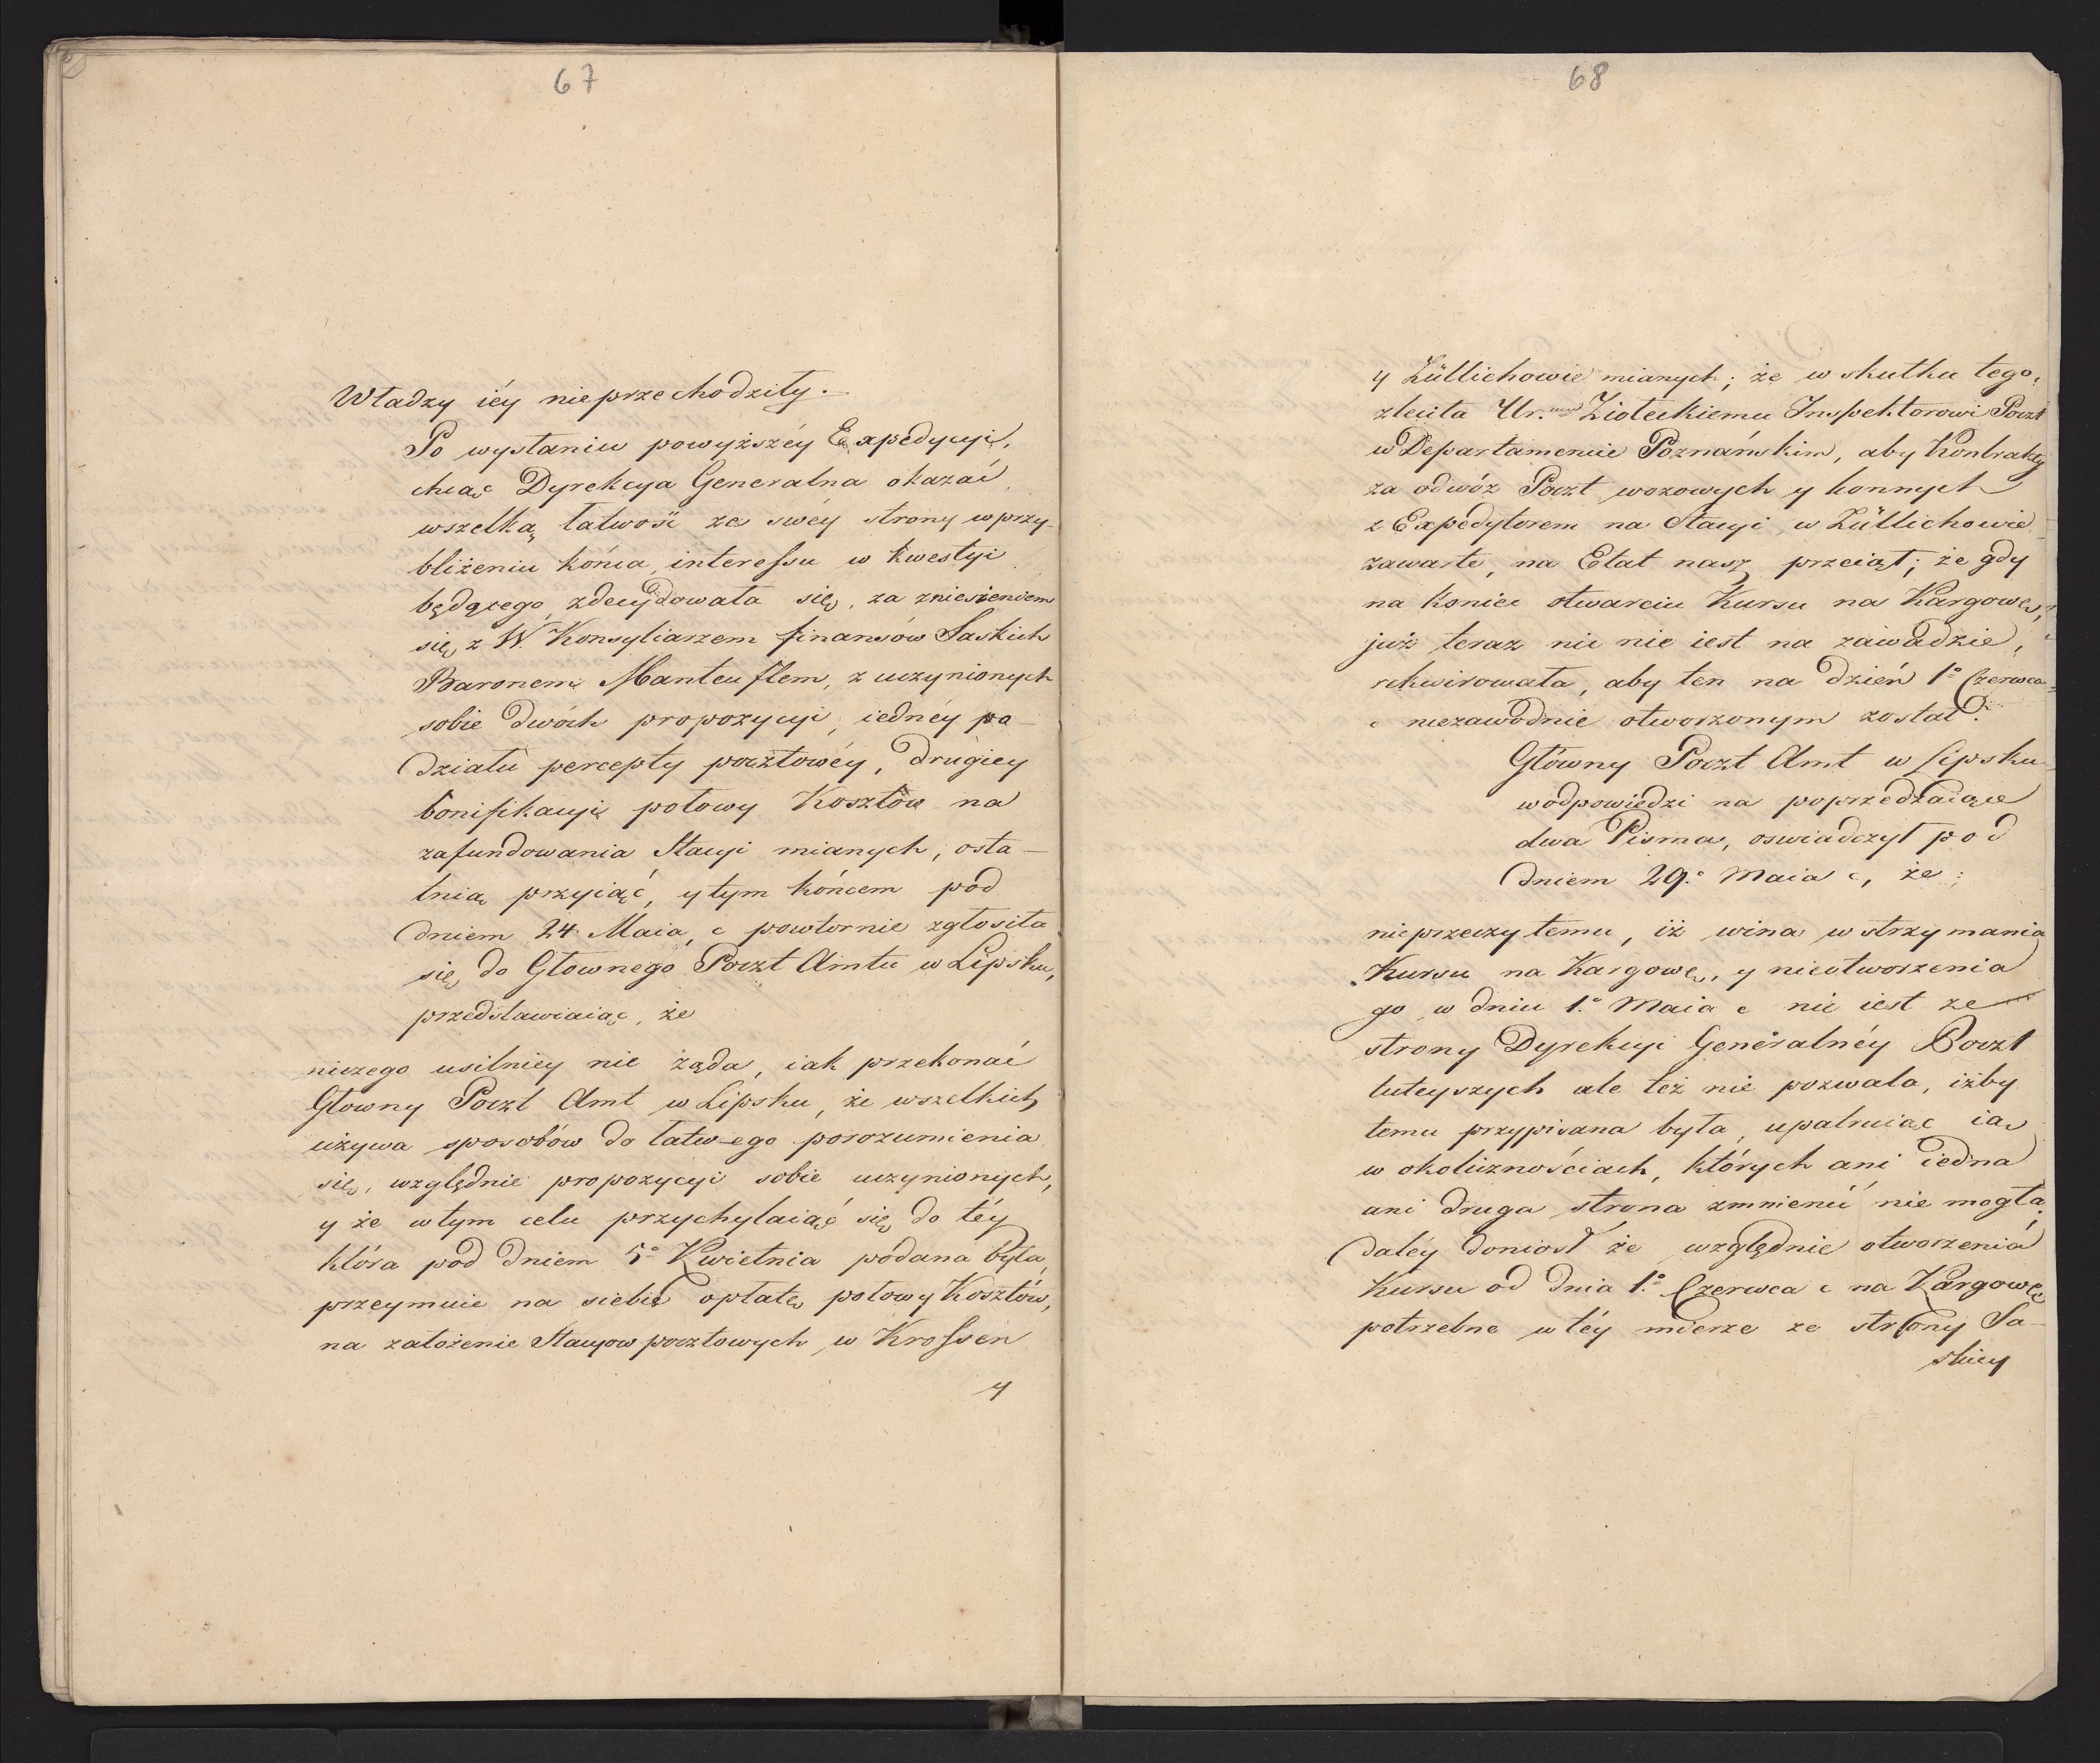 67
Władzy iéy nieprzechodziły.
Po wysłaniu powyższéy Expedycyi,
chcąc Dyrekcya Generalna okazać
wszelką łatwość ze swéy strony w przy-
bliżeniu końca interessu w kwestyi
będącego zdecydowała się, za zniesieniem
się z W. Konsyliarzem finansów Saskich
Baronem Manteuflem, z uczynionych
sobie dwóch propozycyi, iednéy po-
działu percepty pocztowéy, drugiey
bonifikacyi połowy Kosztów na
zafundowania Stacyi mianych, osta-
tnią przyiąć, y tym końcem pod
dniem 24. Maia, c powtornie zgłosiła
się do Głownego Poczt Amtu w Lipsku,
przedstawiaiąc, że
niczego usilniey nie żąda, iak przekonać
Głowny Poczt Amt w Lipsku, że wszelkich
używa sposobów do łatwego porozumienia
się, względnie propozycyi sobie uczynionych,
y że w tym celu przychylaiąć się do téy
która pod dniem 5º Kwietnia pódana była,
przeymuie na siebie opłatę połowy Kosztów,
na założenie Stacyow pocztowych w Krossen
y
68
y Züllichowie mianych; że w skutku tego,
zleciła Ur. Ziołeckiemu Inspektorowi Poczt
w Departamencie Poznańskim, aby Kontrakty
za odwóz Poczt wozowych y konnych
z Expedytorem na Stacyi w Züllichowie
zawarte, na Etat nasz przeciąt; że gdy
na koniec otwarciu Kursu na Kargowę,
już teraz nic nie iest na zawadzie,
rekwirowała, aby ten na dzień 1º Czerwca
c niezawodnie otworzonym został.
Główny Poczt Amt w Lipsku
w odpowiedzi na poprzedzaiące
dwa Pisma, oswiadczył pod
dniem 29º Maia c, że;
nieprzeczy temu, iż wina wstrzymania
Kursu na Kargowę, y nieotworzenia
go w dniu 1º Maia c nie iest ze
strony Dyrekcyi Generalnéy Poczt
tuteyszych ale też nie pozwala, iżby
temu przypisana była, upatruiąc ią
w okolicznościach, których ani iedna
ani druga strona zmnienić nie mogła,
daléy doniosł że względnie otworzenia
Kursu od dnia 1º Czerwca c na Kargowę
potrzebne w téy mierze ze strony Sa-
skiey